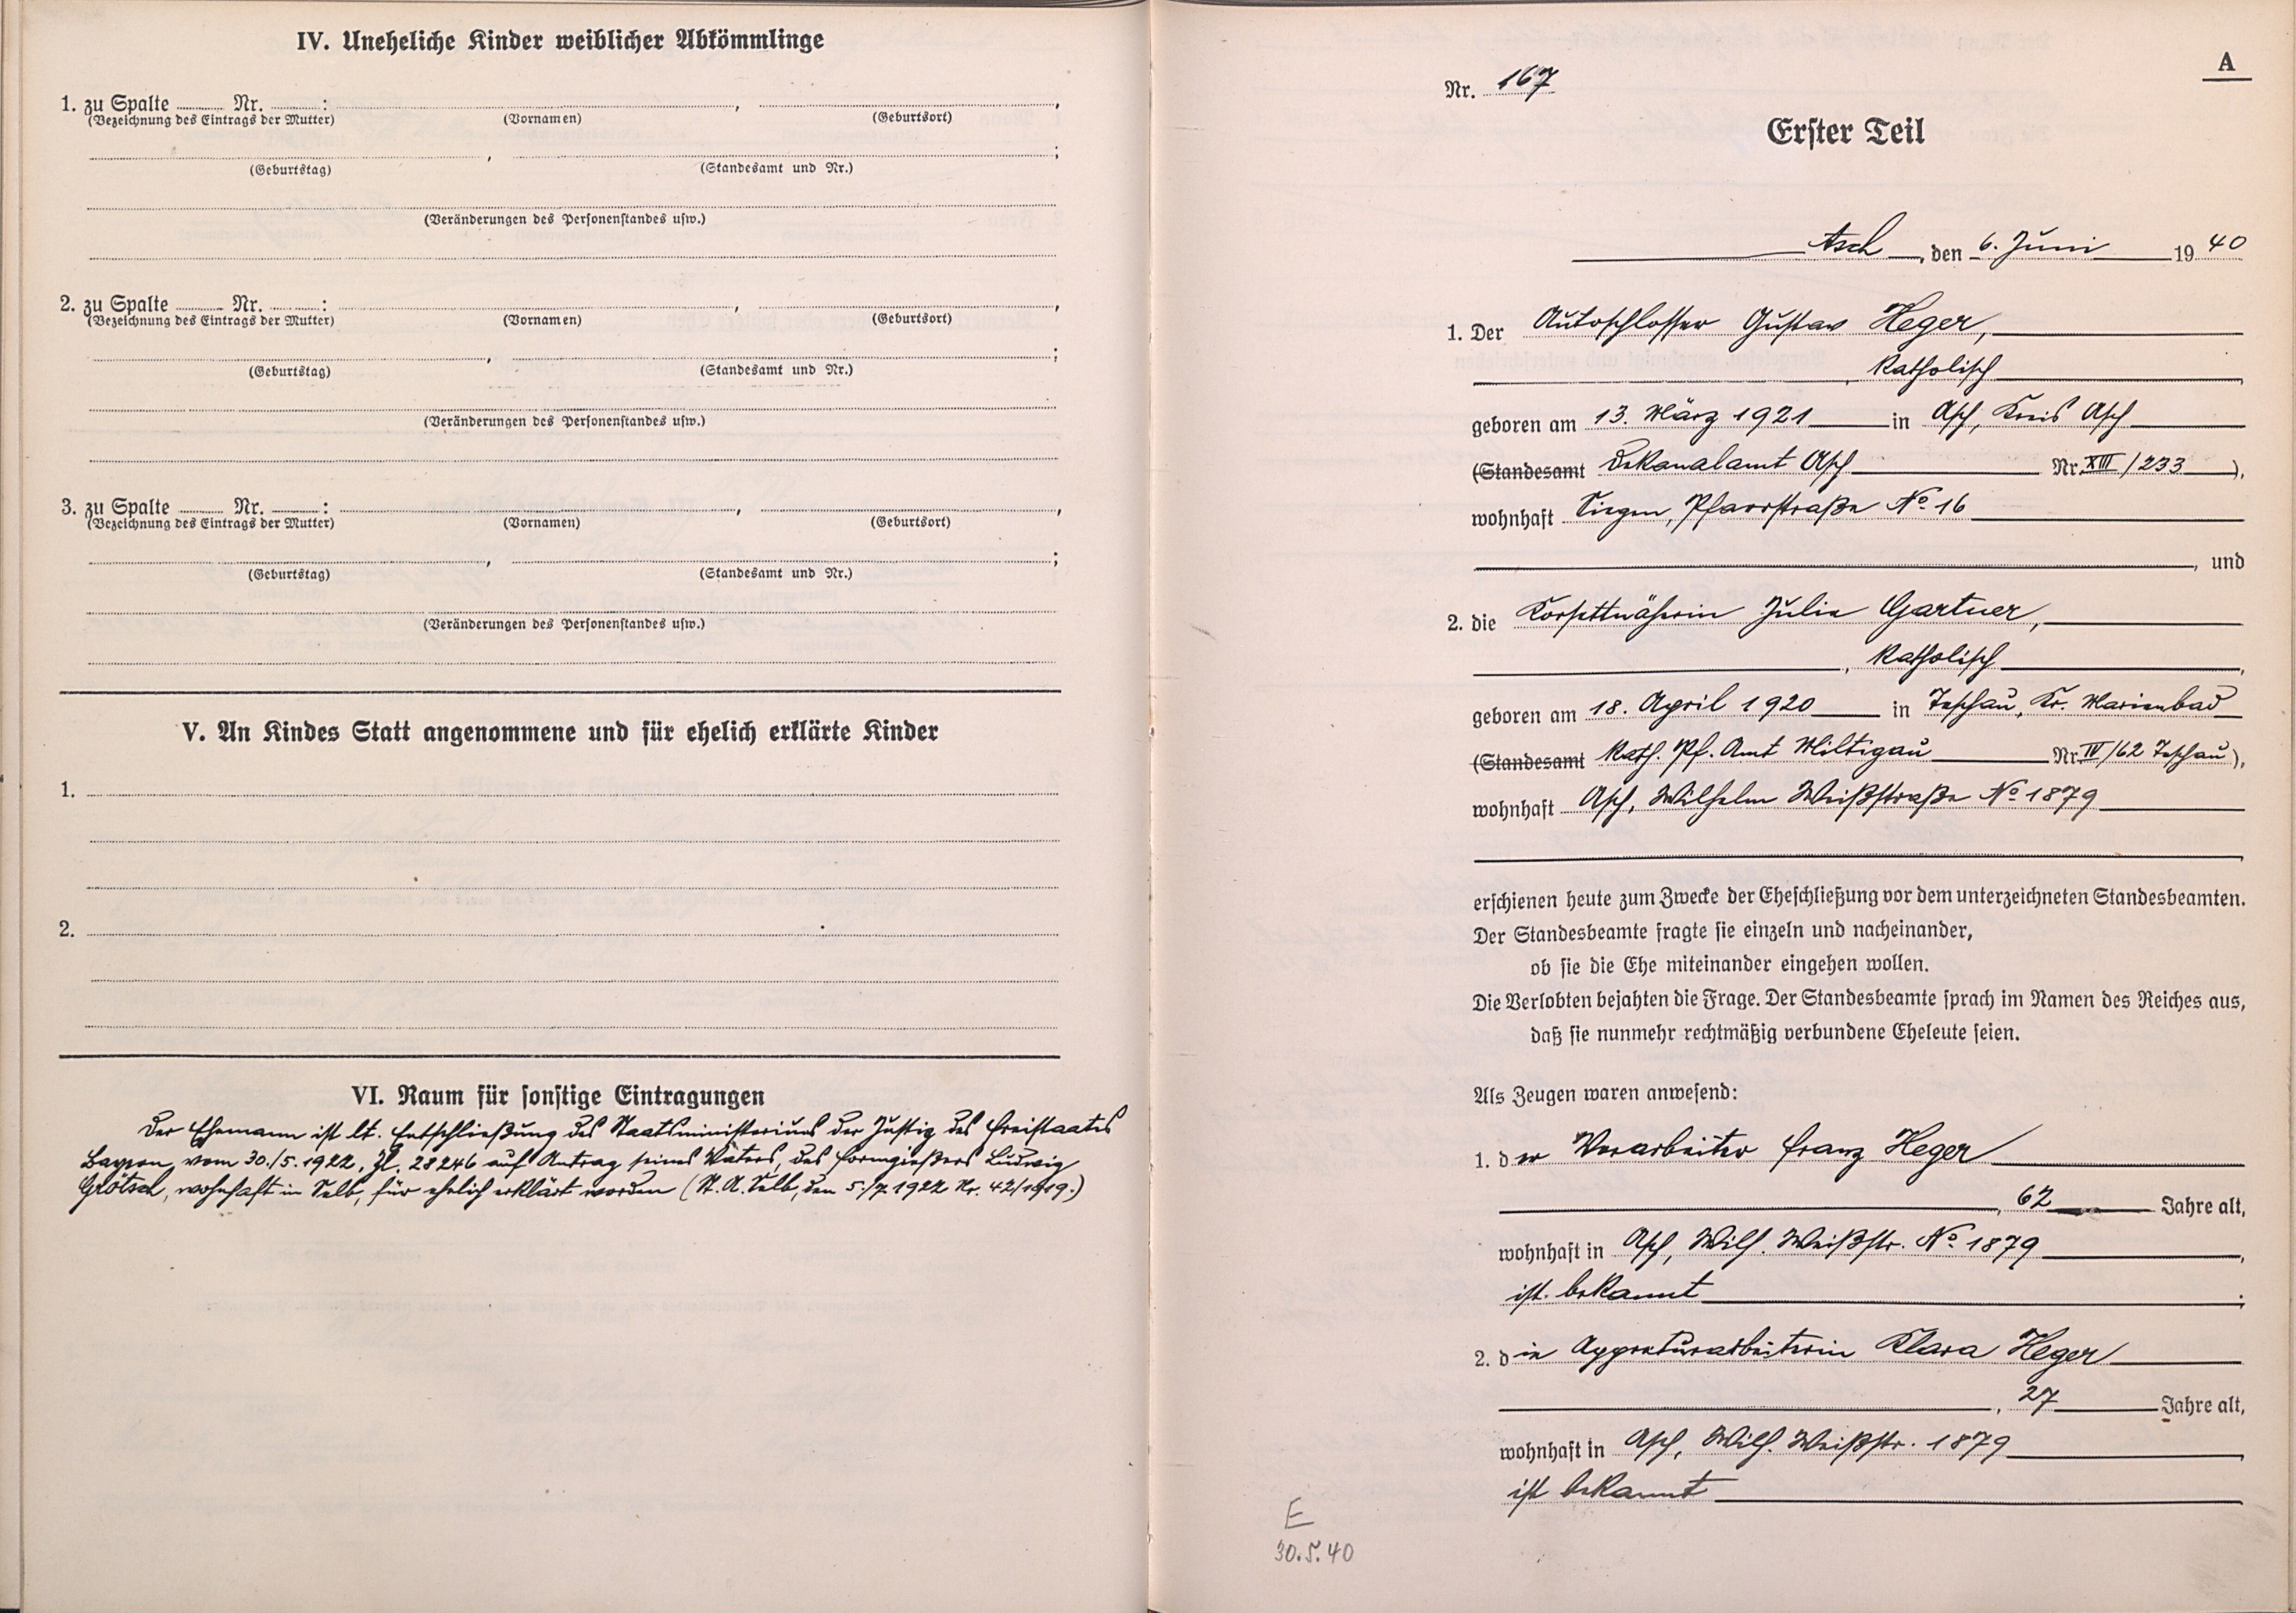 IV. Uneheliche Kinder weiblicher Abkömmlinge
1. zu Spalte ........ Nr. ........ :
(Bezeichnung des Eintrags der Mutter) (Vornamen) (Geburtsort)
(Geburtstag) (Standesamt und Nr.)
(Veränderungen des Personenstandes usw.)
2. zu Spalte ........ Nr. ........ :
(Bezeichnung des Eintrags der Mutter) (Vornamen) (Geburtsort)
(Geburtstag) (Standesamt und Nr.)
(Veränderungen des Personenstandes usw.)
3. zu Spalte ........ Nr. ........ :
(Bezeichnung des Eintrags der Mutter) (Vornamen) (Geburtsort)
(Geburtstag) (Standesamt und Nr.)
(Veränderungen des Personenstandes usw.)
V. An Kindes Statt angenommene und für ehelich erklärte Kinder
1.
2.
VI. Raum für sonstige Eintragungen
Der Ehemann ist lt. Entschließung des Staatsministeriums der Justiz des Freistaates
Bayern vom 30./5.1922, Zl. 28246 auf Antrag seines Vaters, des Formgießers Ludwig
Grötsch, wohnhaft in Selb, für ehelich erklärt worden (St. A. Selb, den 5./7.1922 Nr. 42/1919.)
A
Nr. 167
Erster Teil
Asch, den 6. Juni 1940
1. Der Autoschlosser Gustav Heger,
, katholisch
geboren am 13. März 1921 in Asch, Kreis Asch
(Standesamt Dekanalamt Asch Nr. XIII/233),
wohnhaft Siegen, Pfarrstraße No 16
, und
2. die Korsettnäherin Julie Gartner,
, katholisch,
geboren am 18. April 1920 in Teschau, Kr. Marienbad
(Standesamt Kath. Pf. Amt Miltigau Nr. IV/62 Teschau),
wohnhaft Asch, Wilhelm Weißstraße No 1879
erschienen heute zum Zwecke der Eheschließung vor dem unterzeichneten Standesbeamten.
Der Standesbeamte fragte sie einzeln und nacheinander,
ob sie die Ehe miteinander eingehen wollen.
Die Verlobten bejahten die Frage. Der Standesbeamte sprach im Namen des Reiches aus,
daß sie nunmehr rechtmäßig verbundene Eheleute seien.
Als Zeugen waren anwesend:
1. der Vorarbeiter Franz Heger
, 62 Jahre alt,
wohnhaft in Asch, Wilh. Weißstr. No 1879,
ist bekannt;
2. die Appreturarbeiterin Klara Heger
, 27 Jahre alt,
wohnhaft in Asch, Wilh. Weißstr. 1879,
ist bekannt
E
30.5.40